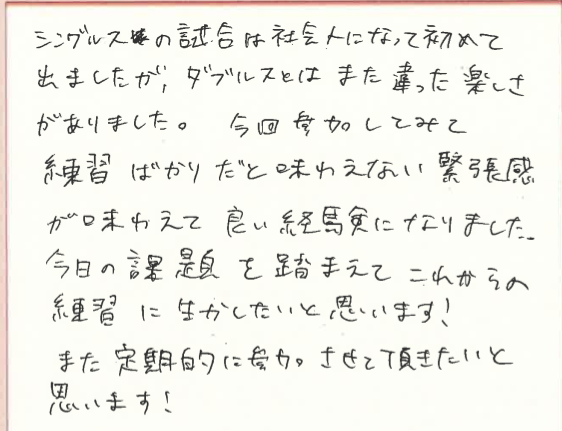 シングルスの試合は社会人になって初めて
出ましたが、ダブルスとはまた違った楽しさ
がありました。今回参加してみて
練習ばかりだと味わえない緊張感
が味わえて良い経験になりました。
今日の課題を踏まえてこれからの
練習に生かしたいと思います!
また定期的に参加させて頂きたいと
思います!